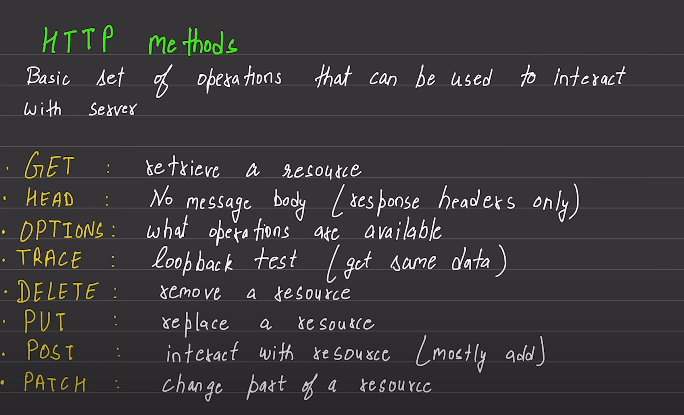 HTTP methods
Basic set of operations that can be used to interact
with server
· GET : retrieve a resource
· HEAD : No message body (response headers only)
· OPTIONS : what operations are available
· TRACE : loopback test (get same data)
· DELETE : remove a resource
· PUT : replace a resource
· POST : interact with resource (mostly add)
· PATCH : change part of a resource